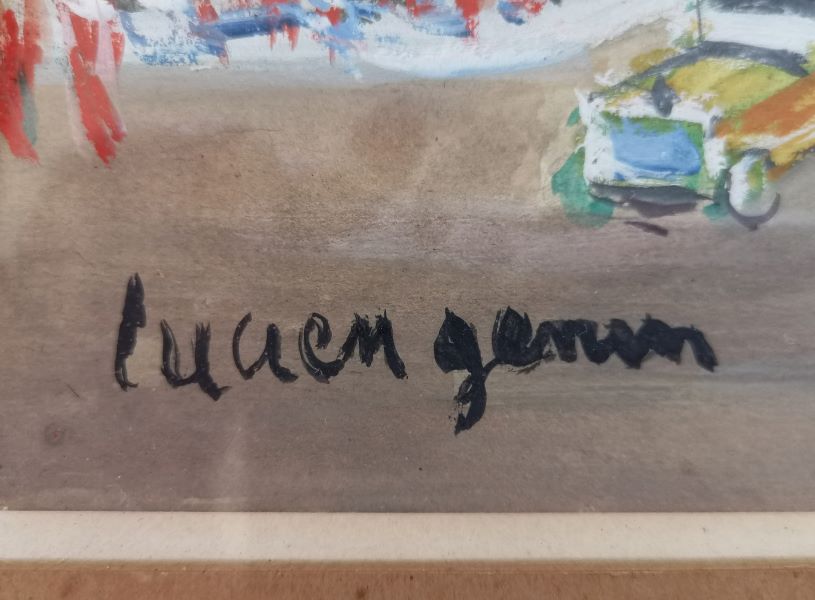 lucien genin